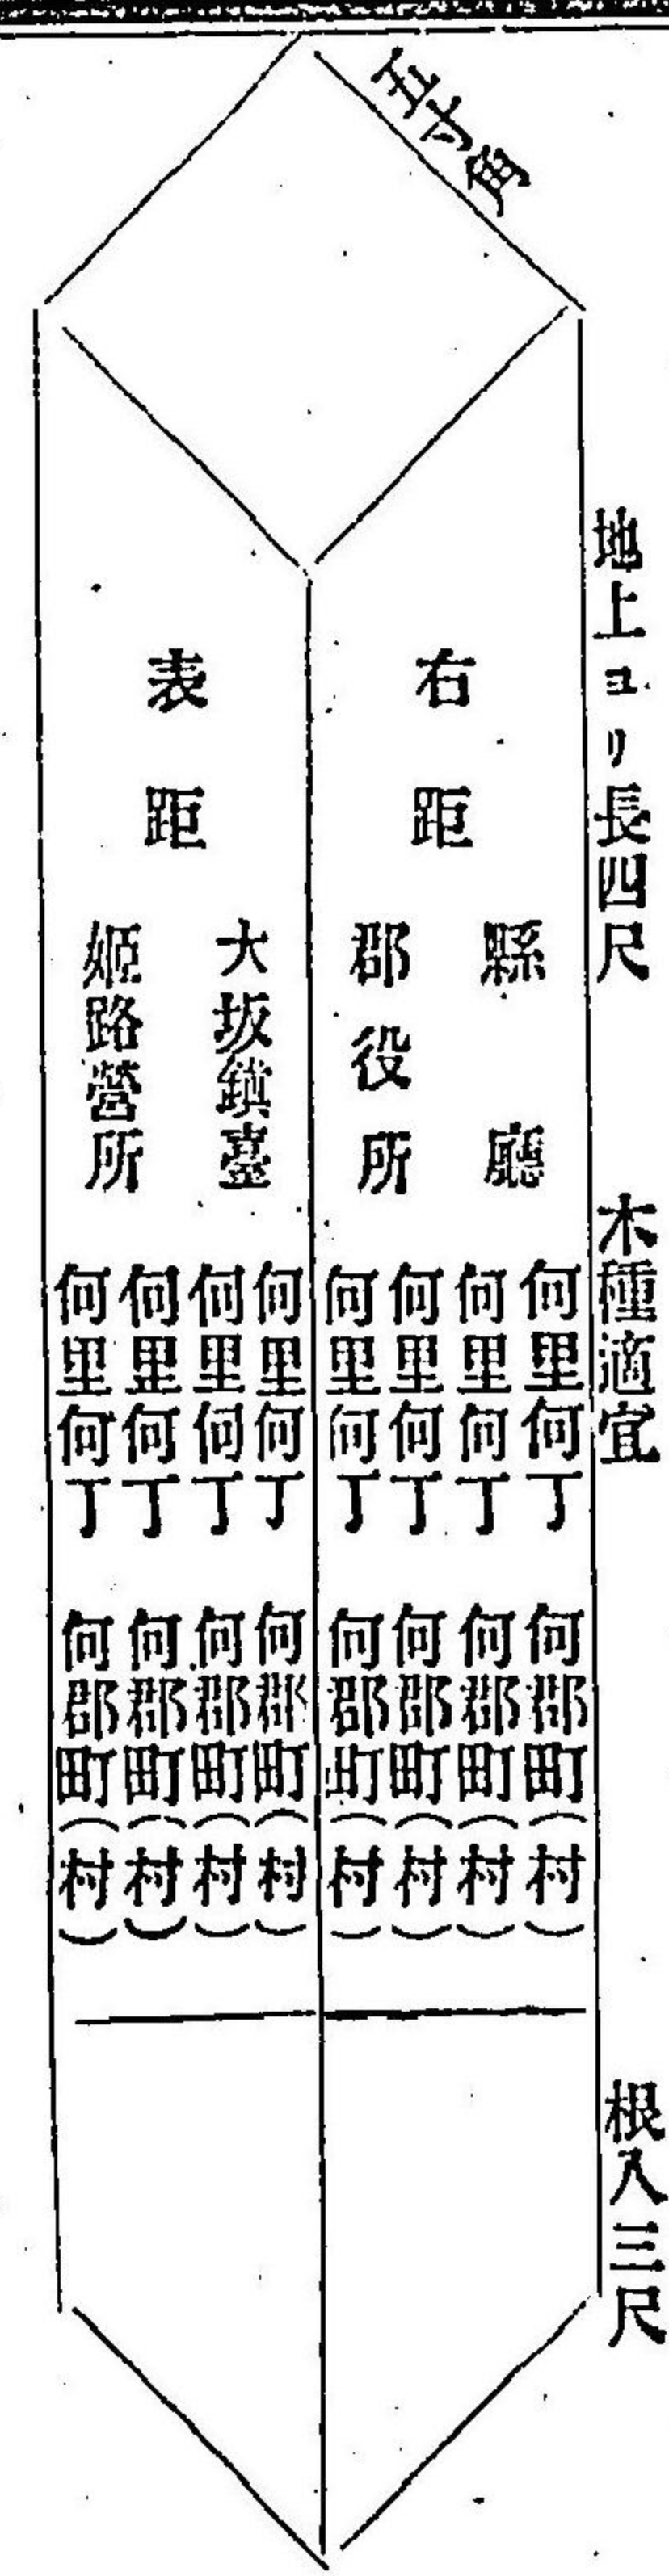 五寸角
地上ヨリ長四尺　木種適宜　根入三尺
右距
縣廳
郡役所
何里何丁　何郡町(村)
何里何丁　何郡町(村)
何里何丁　何郡町(村)
何里何丁　何郡町(村)
表距
大坂鎮臺
姬路營所
何里何丁　何郡町(村)
何里何丁　何郡町(村)
何里何丁　何郡町(村)
何里何丁　何郡町(村)